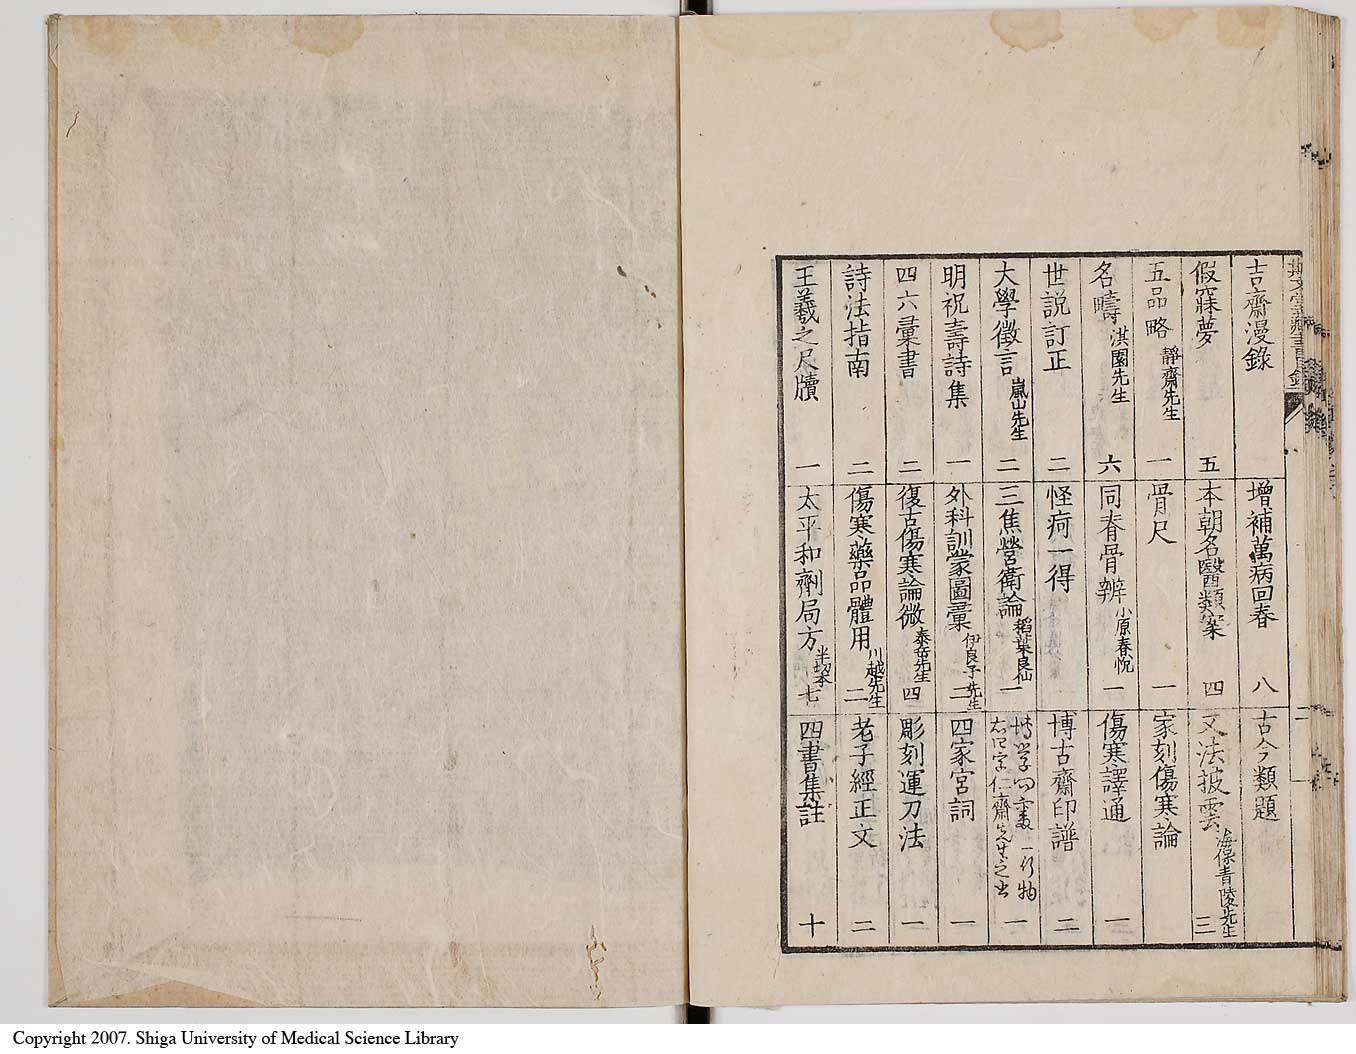 斯文堂藏書目錄
二
吉齋漫錄
假寐夢 五
五品略 靜齋先生 一
名疇 淇園先生 六
世説訂正 二
大學徵言 嵐山先生 二
明祝壽詩集 一
四六彙書 二
詩法指南 二
王羲之尺牘 一
增補萬病回春 八
本朝名醫類案 四
骨尺 一
同春骨辨 小原春悦 一
怪疴一得
三焦營衛論 稻葉良仙 一
外科訓蒙圖彙 伊良子先生 二
復古傷寒論微 泰岳先生 四
傷寒藥品體用 川越先生 二
太平和劑局方 半切本 七
古今類題
文法披雲 海保青陵先生 三
家刻傷寒論
傷寒譯通 一
博古齋印譜 二
一行物
仁齋先生之書 一
四家宮詞 一
彫刻運刀法 一
老子經正文 二
四書集註 十
Copyright 2007. Shiga University of Medical Science Library